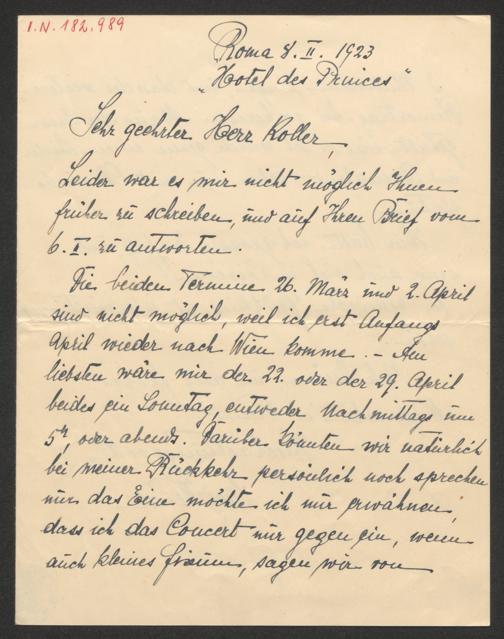 I.N. 182.989
Roma 8. II. 1923
„Hotel des Princes"
Sehr geehrter Herr Koller,
Leider war es mir nicht möglich Ihnen
früher zu schreiben, und auf Ihren Brief vom
6. I. zu antworten.
Die beiden Termine 26. März und 2. April
sind nicht möglich, weil ich erst Anfangs
April wieder nach Wien komme. – Am
liebsten wäre mir der 22. oder der 29. April
beides ein Sonntag, entweder Nachmittags um
5h, oder abends. Darüber könnten wir natürlich
bei meiner Rückkehr persönlich noch sprechen
nur das Eine möchte ich nur erwähnen,
dass ich das Concert nur gegen ein, wenn
auch kleines fixum, sagen wir von